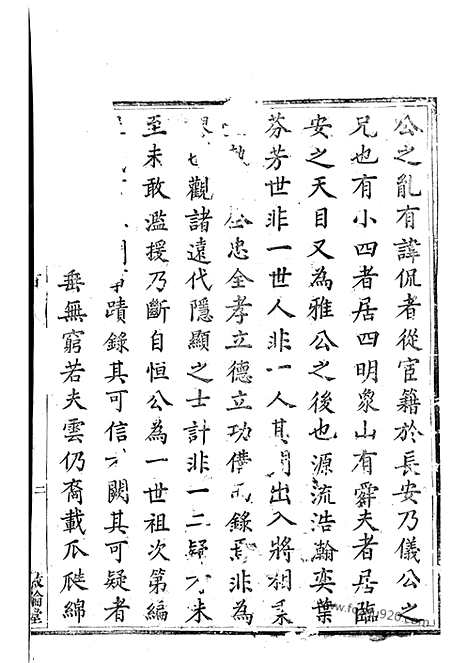 公之亂有諱侃者從宦籍於長安乃儀公之
兄也有小四者居四明象山有辭夫者居臨
安之天目又為雅公之後也源流浩瀚奕葉
芬芳世非一世人非一人其間出入將相
忠全孝立德立功 錄 非為
觀諸遠代隱顯之士計非一二疑 未
至未敢濫授乃斷自恒公為一世祖次第編
蹟錄其可信 闕其可疑者
垂無窮若夫雲仍裔載瓜瓞綿
二